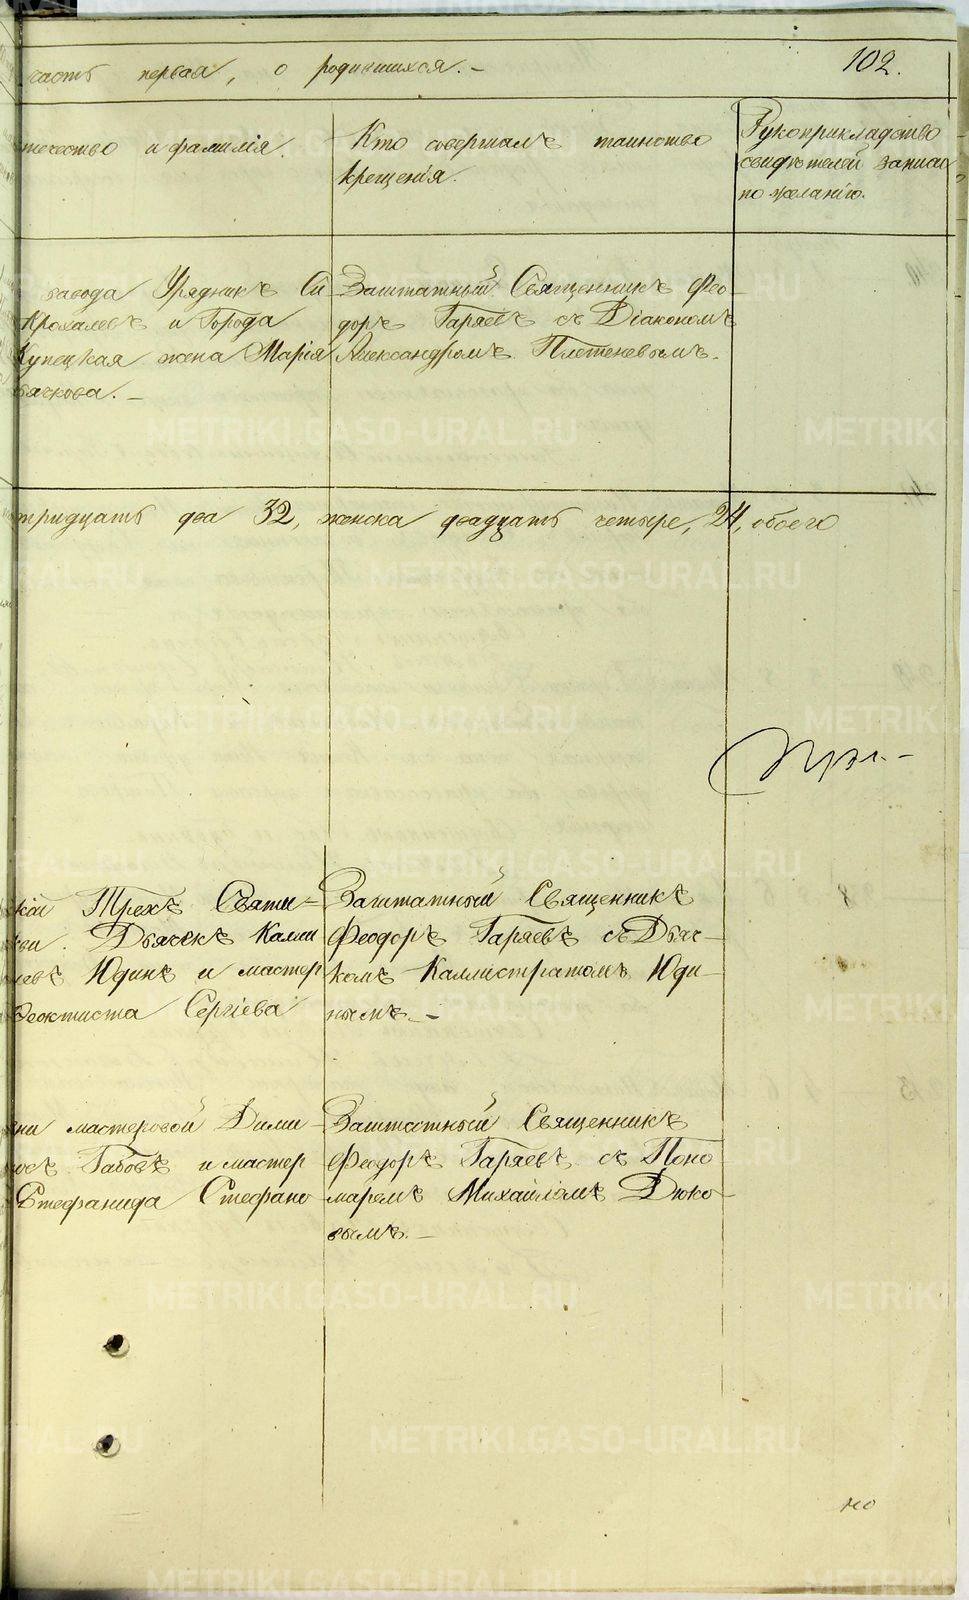 часть первая, о родившихся.–
102.
течество и фамилія.
Кто совершалъ таинство
крещенія.
Рукоприкладство
свидѣтелей записи
по желанію.
завода Урядникъ Си
Крохалевъ и Города
Купецкая жена Марія
ячкова.–
Заштатный Священникъ Фео–
доръ Гаряевъ съ Діакономъ
Александромъ Плетеневымъ.
тридцать два 32, женска двадцать четыре, 24, обоего
кой Трехъ Святи–
ви. Дьячекъ Калли
евъ Юдинъ и мастер
Феоктиста Сергіева
Заштатный Священникъ
Феодоръ Гаряевъ съ Дьяч–
комъ Каллистратомъ Юди–
нымъ.–
ни мастеровой Дими–
Габовъ и мастер
Стефанида Стефано
Заштатный Священникъ
Феодоръ Гаряевъ съ Поно
маремъ Михайломъ Дюко–
вымъ.–
по
METRIKI.GASO-URAL.RU